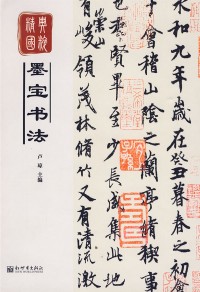 墨宝书法
主编
新世界出版社
永和九年歲在癸丑暮春之初會
于會稽山陰之蘭亭脩稧事
也羣賢畢至少長咸集此地
有崇山峻領茂林脩竹又有清流激